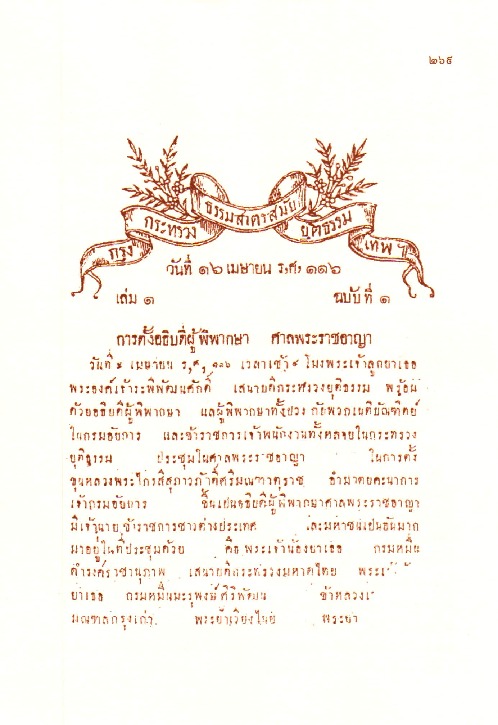 ๒๖๙
ธรรมสาตรสมัย
กระทรวง ยุติธรรม
กรุง เทพฯ
วันที่ ๑๖ เมษายน ร,ศ, ๑๑๖
เล่ม ๑ ฉบับที่ ๑
การตั้งอธิบดีผู้พิพากษา ศาลพระราชอาญา
วันที่ เมษายน ร,ศ, ๑๑๖ เวลาเช้า โมงพระเจ้าลูกยาเธอ
พระองค์เจ้ารพีพัฒนศักดิ์ เสนาบดีกระทรวงยุติธรรม พร้อม
ด้วยอธิบดีผู้พิพากษา แลผู้พิพากษาทั้งปวง กับพวกเนติบัณฑิตย์
ในกรมอัยการ และข้าราชการเจ้าพนักงานทั้งหลายในกระทรวง
ยุติธรรม ประชุมในศาลพระราชอาญา ในการตั้ง
ขุนหลวงพระไกรสี อำมาตยคณาการ
เจ้ากรมอัยการ ขึ้นเปนอธิบดีผู้พิพากษาศาลพระราชอาญา
มีเจ้านาย ข้าราชการชาวต่างประเทศ และมหาชนเปนอันมาก
มาอยู่ในที่ประชุมด้วย คือ พระเจ้าน้องยาเธอ กรมหมื่น
ดำรงค์ราชานุภาพ เสนาบดีกระทรวงมหาดไทย
ยาเธอ กรมหมื่นมะรุพงษ์ศิริพัฒน ข้าหลวง
มณฑลกรุงเก่า พระยา